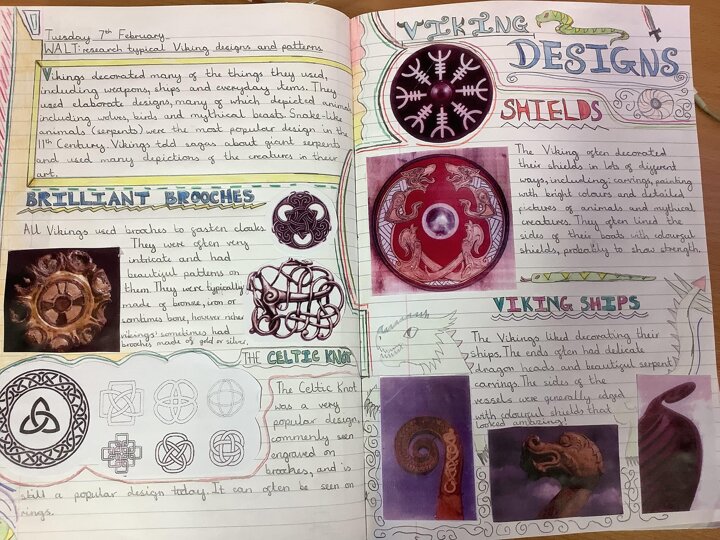 Tuesday 7th February
WALT: research typical Viking designs and patterns
Vikings decorated many of the things they used,
including weapons, ships and everyday items. They
used elaborate designs, many of which depicted animals
including wolves, birds and mythical beasts. Snake-like
animals (serpents) were the most popular design in the
11th Century. Vikings told sagas about giant serpents
and used many depictions of the creatures in their
art.
BRILLIANT BROOCHES
All Vikings used brooches to fasten cloaks.
They were often very
intricate and had
beautiful patterns on
them. They were typically
made of bronze, iron or
sometimes bone, however richer
vikings sometimes had
brooches made of gold or silver.
THE CELTIC KNOT
The Celtic Knot
was a very
popular design,
commonly seen
engraved on
broches, and is
still a popular design today. It can often be seen on
rings.
VIKING
DESIGNS
SHIELDS
The Viking often decorated
their shields in lots of different
ways, including: carvings, painting
with bright colours and detailed
pictures of animals and mythical
creatures. They often lined the
sides of their boats with colourful
shields, probably to show strength.
VIKING SHIPS
The Vikings liked decorating their
ships. The ends often had delicate
dragon heads and beautiful serpent
carvings. The sides of the
vessels were generally edged
with colourful shields that
looked amazing!